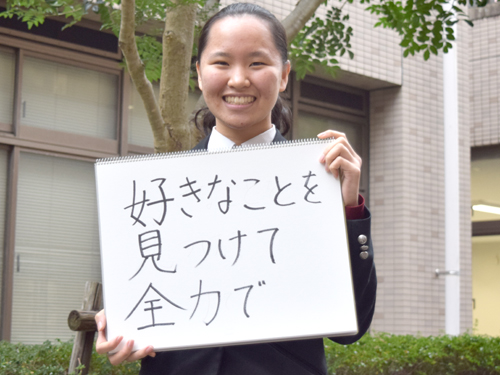 好きなことを
見つけて
全力で